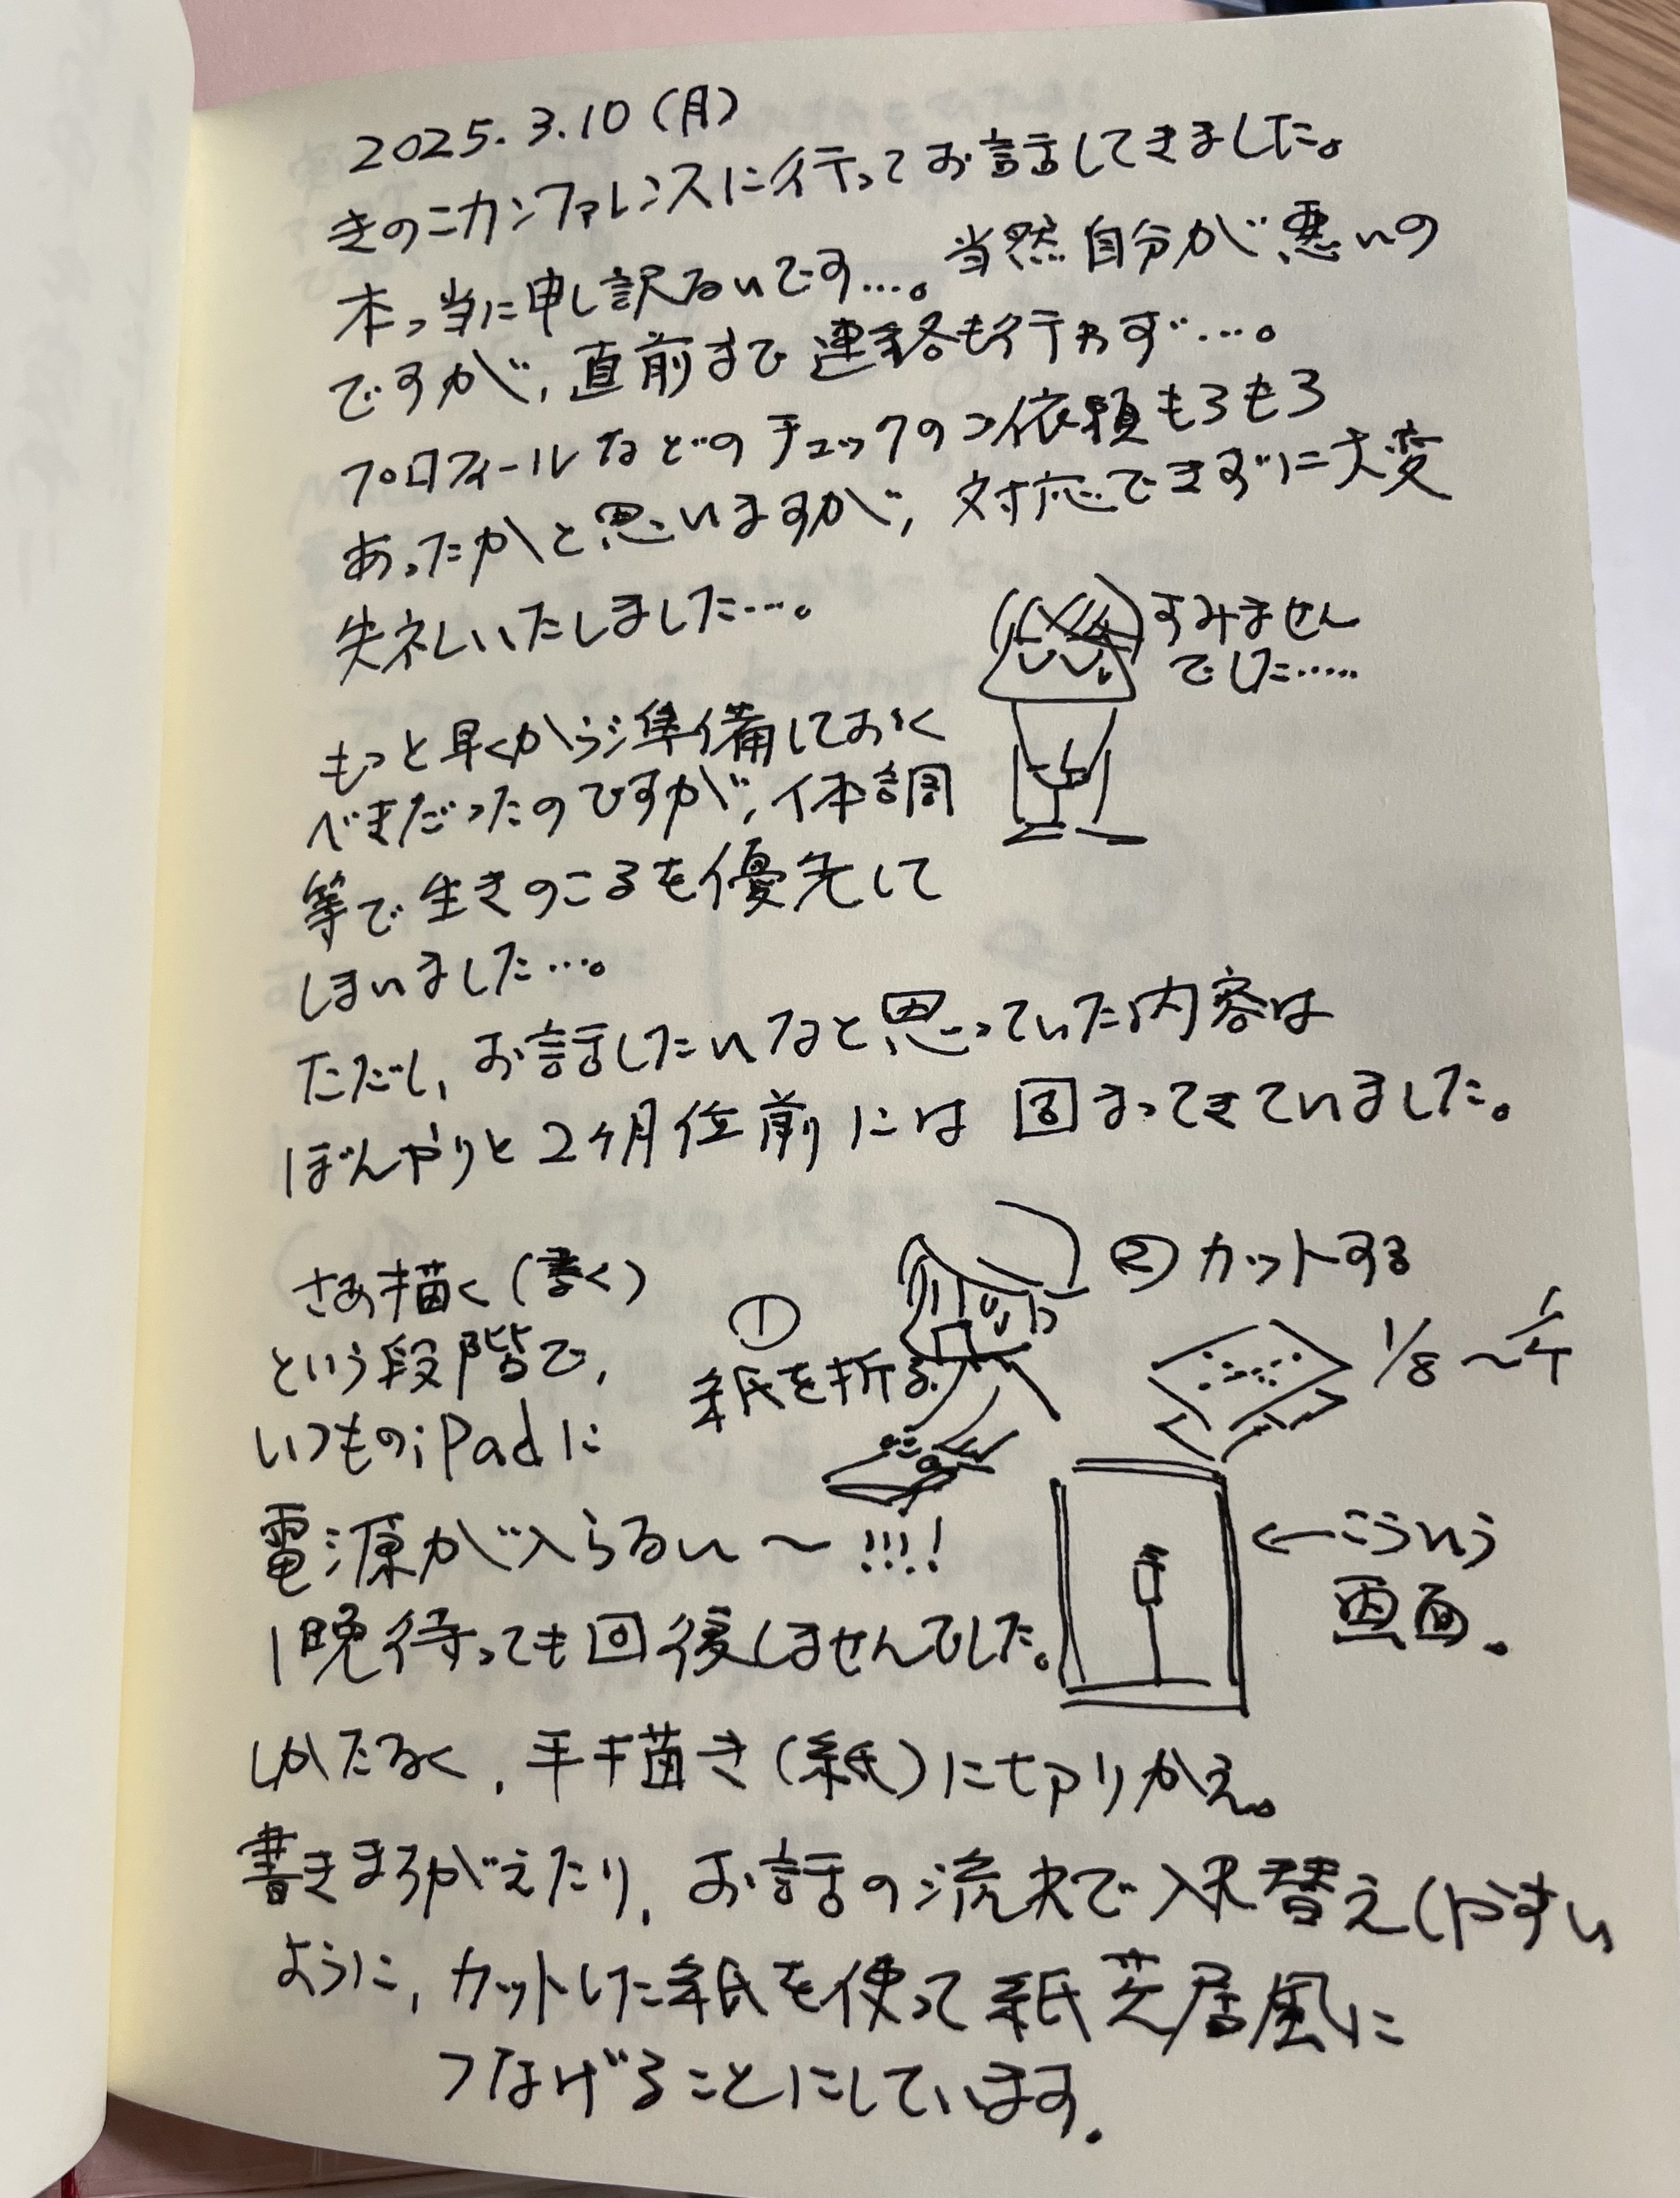 2025.3.10(月)
きのこカンファレンスに行ってお話してきました。
本っ当に申し訳ないです…。当然自分が悪いの
ですが、直前まで連絡も行わず…。
プロフィールなどのチェックのご依頼もろもろ
あったかと思いますが、対応できずに大変
失礼いたしました…。
すみません
でした……
もっと早くから準備しておく
べきだったのですが、体調
等で生きのこるを優先して
しまいました…。
ただし、お話したいなと思っていた内容は
ぼんやりと2ヶ月位前には固まってきていました。
さあ描く(書く)
という段階で、
いつものiPadに
電源が入らない〜!!!!
1晩待っても回復しませんでした。
①
紙を折る
②カットする
1/8〜1/4
←こういう
画面。
しかたなく、手描き(紙)に切りかえ。
書きまちがえたり、お話の流れで入れ替えしやすい
ように、カットした紙を使って紙芝居風に
つなげることにしています。